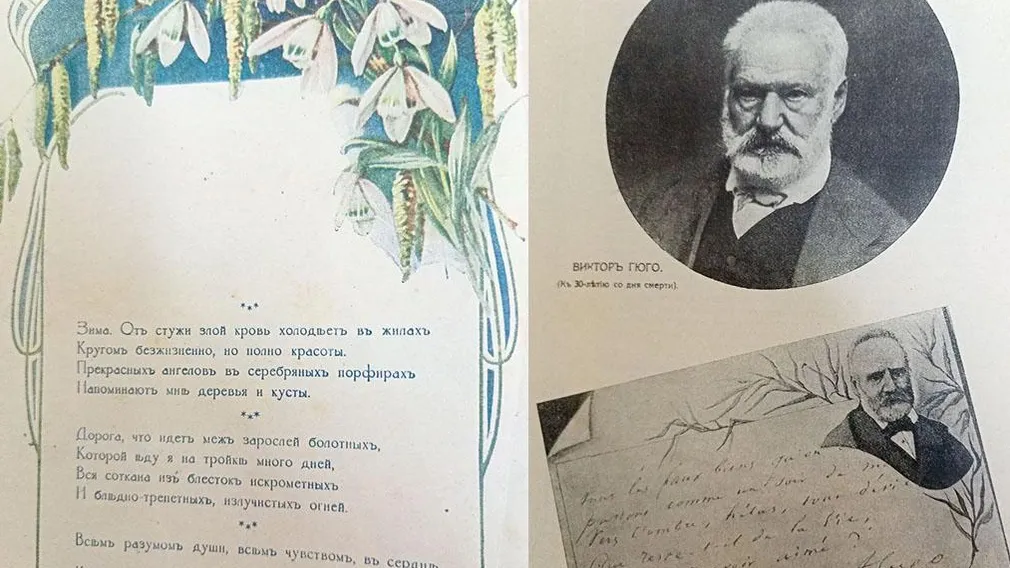 ***
Зима. Отъ стужи злой кровь холодѣетъ въ жилахъ
Кругомъ безжизненно, но полно красоты.
Прекрасныхъ ангеловъ въ серебряныхъ порфирахъ
Напоминаютъ мнѣ деревья и кусты.
***
Дорога, что идетъ межъ зарослей болотныхъ,
Которой ѣду я на тройкѣ много дней,
Вся соткана изъ блестокъ искрометныхъ
И блѣдно-трепетныхъ, излучистыхъ огней.
***
Всѣмъ разумомъ души, всѣмъ чувствомъ, въ сердцѣ
ВИКТОРЪ ГЮГО.
(Къ 30-лѣтію со дня смерти).
tous les plus biens
passons comme un soir de
vers l'ombre, hélas, tout
de la vie,
aimé ?